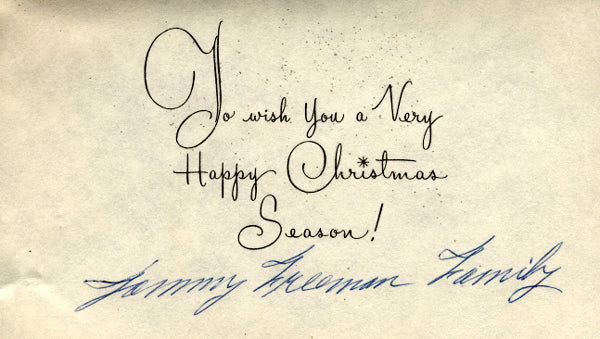 To wish You a Very
Happy Christmas
Season!
Tommy Freeman Family